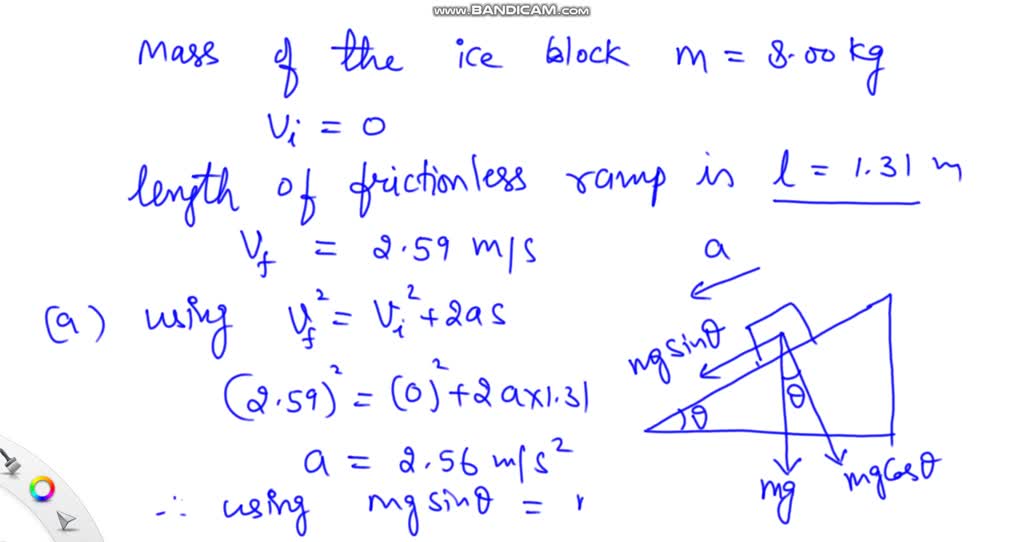 www.BANDICAM.com
Mass of the ice block m = 8.00 kg
Vi = 0
length of frictionless ramp is l = 1.31 m
Vf = 2.59 m/s
a
(a) using Vf² = Vi² + 2as
mg sinθ
(2.59)² = (0)² + 2a×1.31
θ
θ
a = 2.56 m/s²
mg
mg cosθ
∴ using mg sinθ =